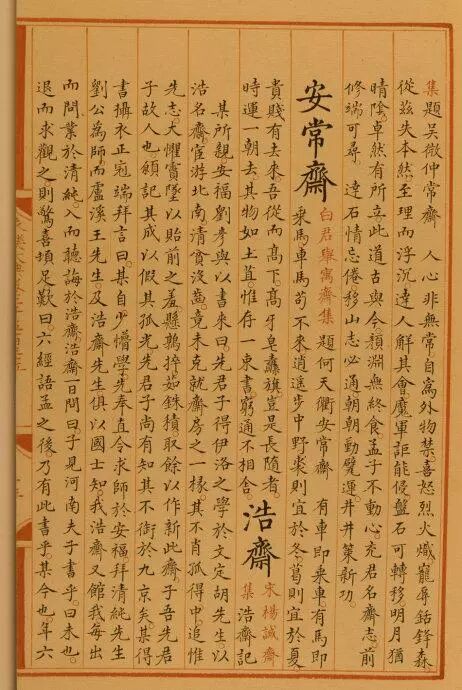 集題吴徵仲常齋　人心非無常自爲外物禁喜怒烈火熾寵辱銛鋒森
從兹失本然至理而浮沉達人解其會魔軍詎能侵盤石可轉移明月猶
晴陰卓然有所立此道古與今顔淵無終食孟子不動心尭君名齋志前
修端可尋　達石情忘倦移山志必通朝朝勤甓運井井策新功
安常齋
白君舉寓齋集　題何天衢安常齋　有車即乘車有馬即
乘馬車馬苟不來逍遥步中野裘則宜於冬葛則宜於夏
貴賤有去來吾從而高下高牙皂纛旗豈是長隨者
時運一朝去其物如土苴惟存一束書窮通不相舍
浩齋
宋楊誠齋
集　浩齋記
某所親安福劉彦與以書來曰先君子得伊洛之學於文定胡先生以
浩名齋宦游北南清貧没齒竟未克就齋房之一椽其不肖孤得中追惟
先志大懼實墜以貽前之羞縣鶉捽茹銖積取餘以作新此齋子吾先君
子故人也願記其成以假其孤光先君子尚有知其不銜於九京矣某得
書攝衣正冠端拜言曰某自少懵學先奉直令求師於安福拜清純先生
劉公爲師而盧溪王先生及浩齋先生俱以國士知我浩齋又館我每出
而問業於清純入而聽誨於浩齋浩齋一日問曰子見河南夫子書乎曰未也
退而求觀之則驚喜頓足歎曰六經語孟之後乃有此書乎某今也年六